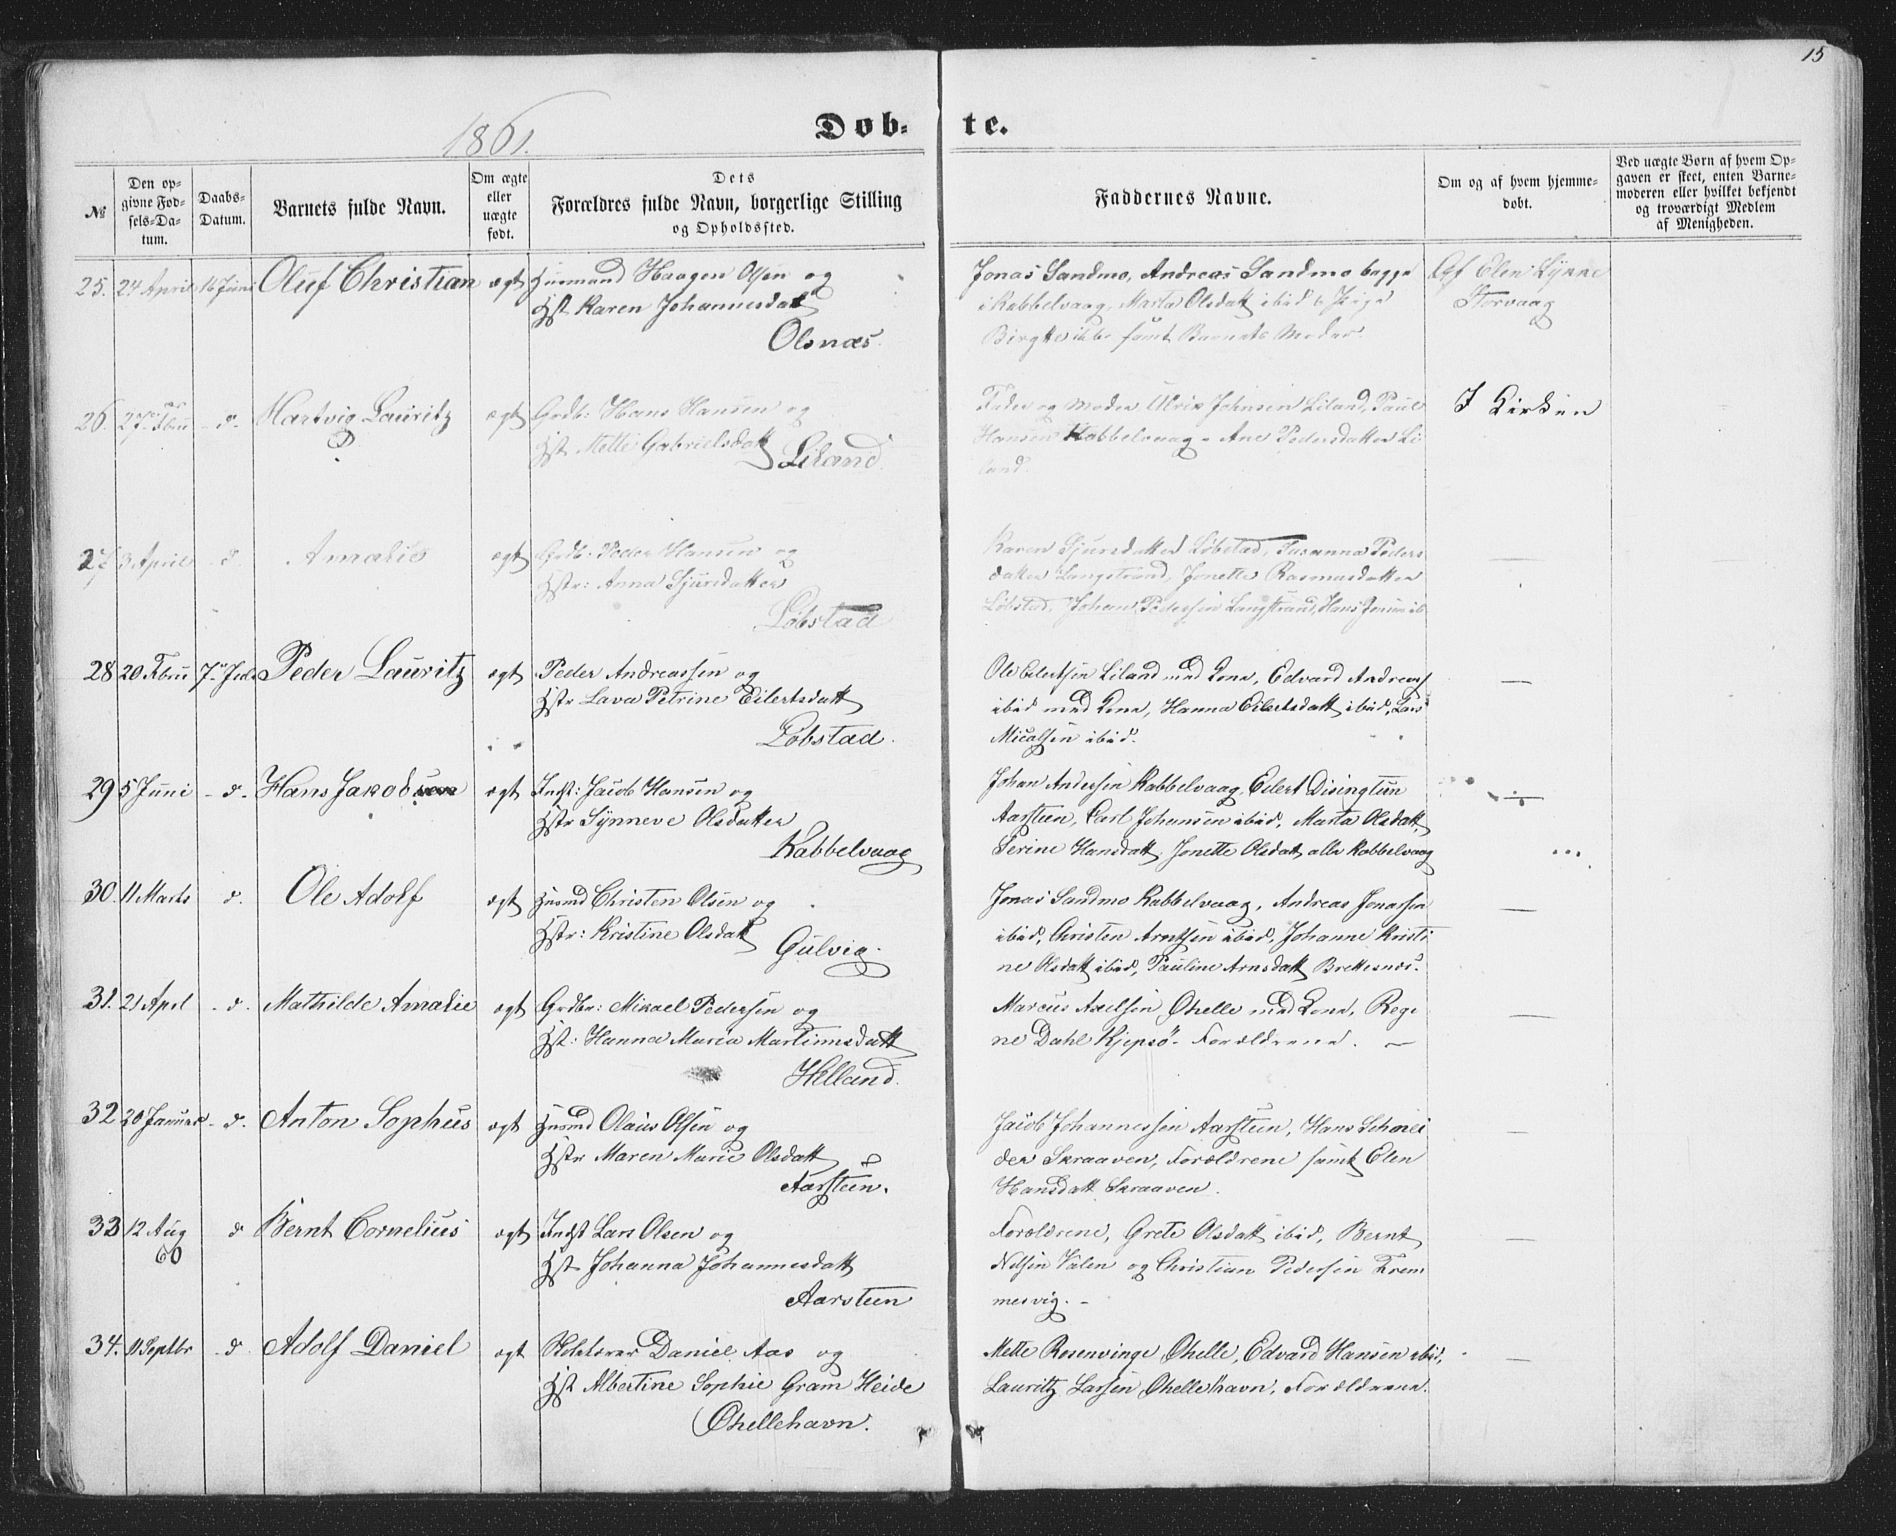 15
1861.
Døb- te.
№
Den opgivne Fødsels-Datum.
Daabs-Datum.
Barnets fulde Navn.
Om ægte eller uægte født.
Dets Forældres fulde Navn, borgerlige Stilling og Opholdssted.
Faddernes Navne.
Om og af hvem hjemmedøbt.
Ved uægte Børn af hvem Opgaven er skeet, enten Barnemoderen eller hvilket bekjendt og troværdigt Medlem af Menigheden.
25. 24 April 16 Juni Oluf Christian ægt Husmand Haagen Olsen og
Hst. Karen Johannesdatt
Olsnæs.
Jonas Sandmo, Andreas Sandmo begge
i Kabbelvaag, Marta Olsdatt ibid
Birgtte ibid samt Barnets Moder.
Af Elen Lynne
Storvaag
26. 27 Fbru d. Hartvig Lauritz ægt Grdb: Hans Hansen og
Hst. Mette Gabrielsdatt
Liland.
Fader og Moder Ulrik Johnsen Liland, Paul
Hansen Kabbelvaag - Ane Pedersdatter Li
land.
I Kirken
27 3 April d. Amalie ægt Grdb: Peder Hansen og
Hstr: Anna Sjursdatter
Løbstad
Karen Sjursdatter Løbstad, Susanna Peders
datter Langstrand, Jonette Rasmusdatter
Løbstad, Johan Pedersen Langstrand, Hans Jensen ib
—
28 20 Fbru 7 Juli Peder Lauritz ægt Peder Andreassen og
Hstr Lava Petrine Eilertsdatt
Løbstad.
Ole Eilertsen Liland med Kone, Edvard Andreass
ibid med Kone, Hanna Eilertsdatt ibid, Lars
Micalsen ibid.
—
29 5 Juni d. Hans Jakob ægt Indst: Jacob Hansen og
Hstr Synneve Olsdatter
Kabbelvaag
Johan Andersen Kabbelvaag, Eilert Disingtun
Aarsteen, Carl Johansen ibid, Marta Olsdatt,
Serine Hansdatt, Jonette Olsdatt alle Kabbelvaag
—
30. 11 Marts d. Ole Adolf ægt Husmd Christen Olsen og
Hstr: Kristine Olsdatt
Gulvig.
Jonas Sandmo Kabbelvaag, Andreas Jonassen
ibid, Christen Arntsen ibid, Johanne Kristi
ne Olsdatt ibid, Pauline Arnsdatt Brettesnæs.
—
31. 21 Apl d. Mathilde Amalie ægt Grdbr: Mikael Pedersen og
Hst: Hanna Maria Martinusdatt
Helland.
Marcus Axelsen Øhelle med Kone, Regi
ne Dahl Kjepsø - Forældrene. —
—
32 20 Januar d. Anton Sophus ægt Husmd Olaus Olsen og
Hstr Maren Marie Olsdatt
Aarsteen.
Jacob Johannessen Aarsteen, Hans Schnei
der Skraaven, Forældrene samt Elen
Hansdatt Skraaven.
—
33 12 Aug
60
d Bernt Cornelius ægt Indst Lars Olsen og
Hst Johanna Johannesdatt
Aarsteen
Forældrene, Grete Olsdatt ibid, Bernt
Nilsen Valen og Christian Pedersen Krem
mervig. -
—
34. 11 Septbr d Adolf Daniel ægt Daniel Aas og
Hst Albertine Sophie Gram Heide
Øhellehavn.
Mette Rosenvinge Øhelle, Edvard Hansen ibid,
Lauritz Larsen Øhellehavn, Forældrene.
—